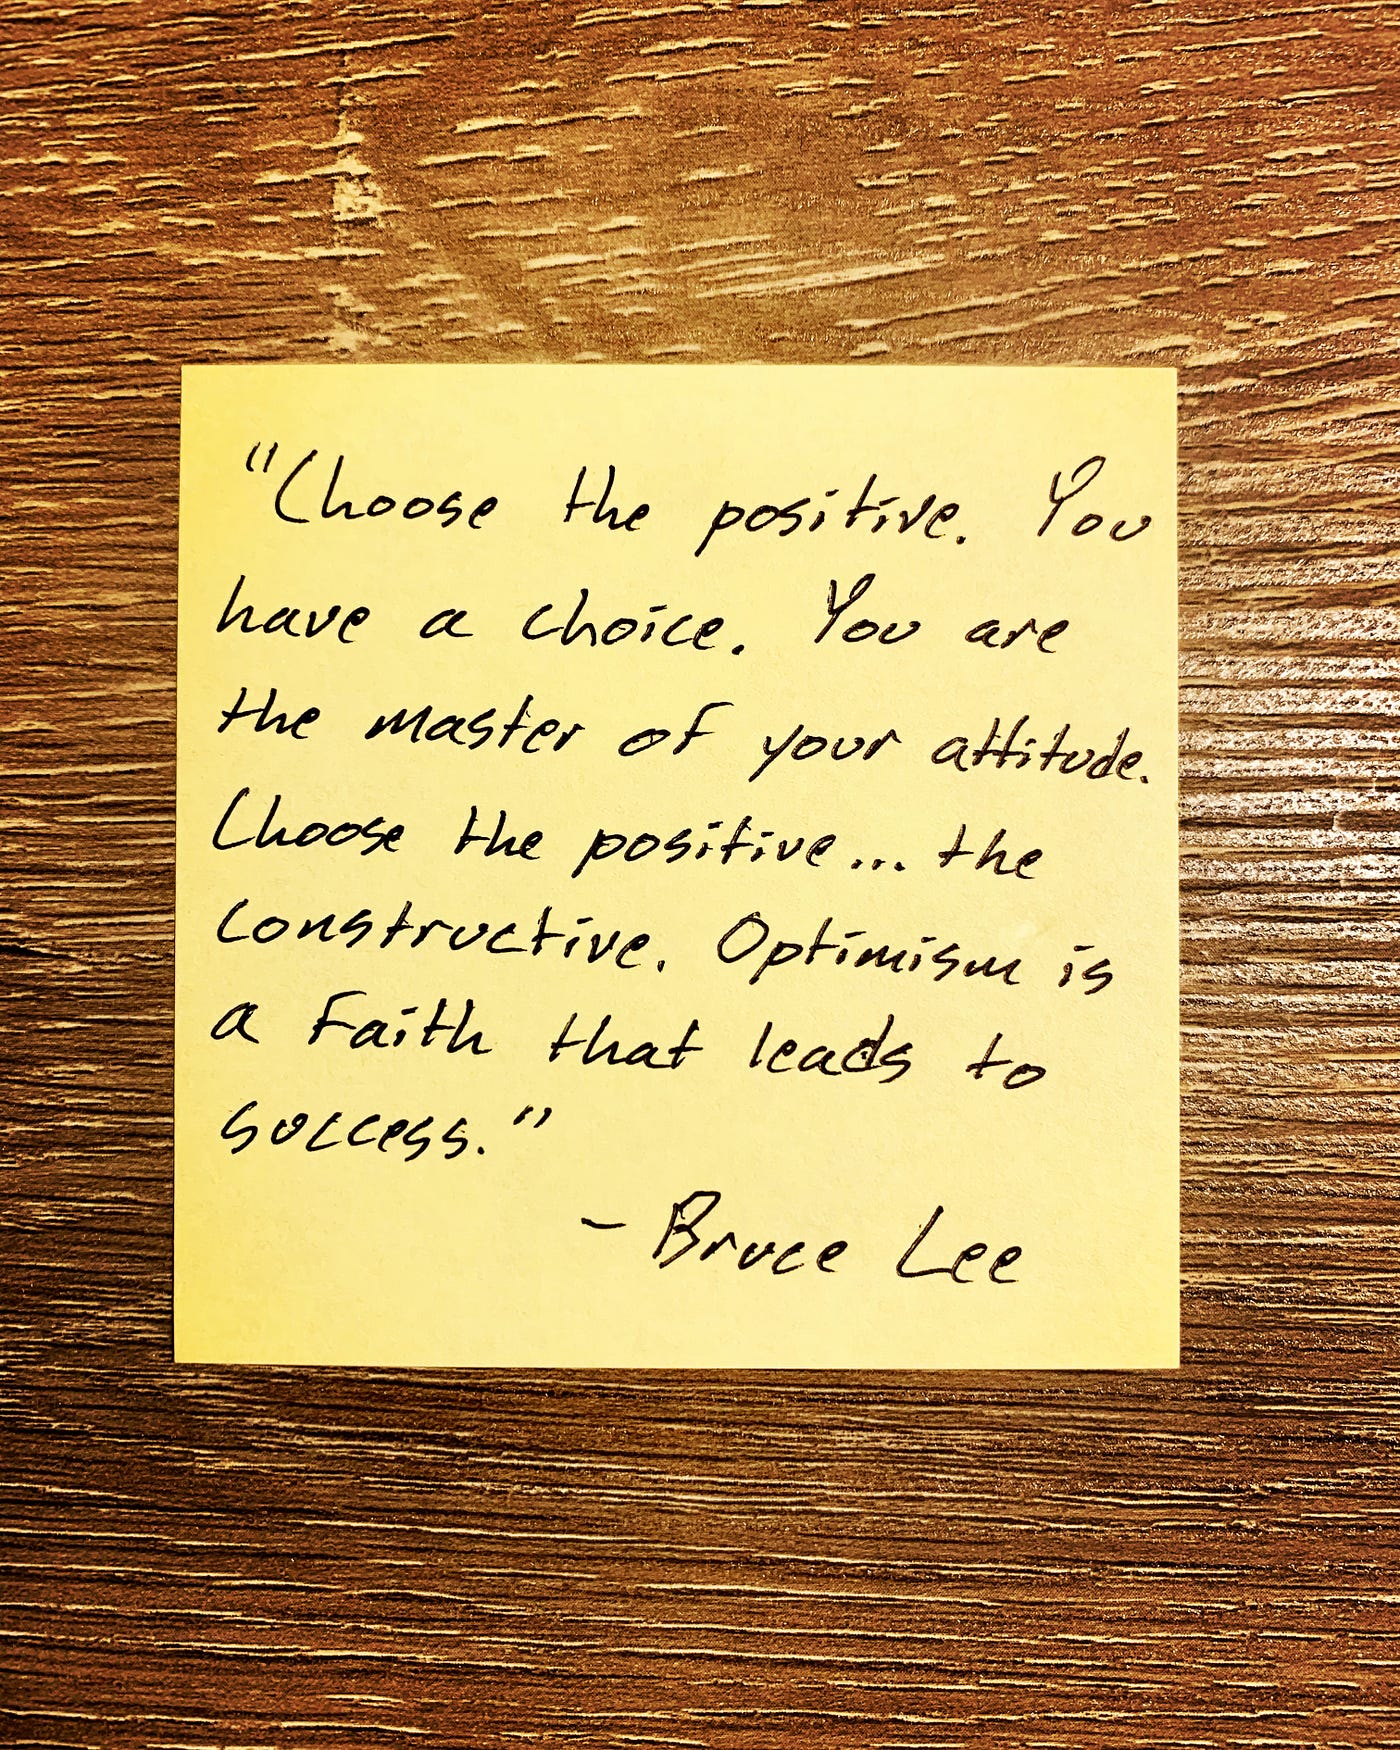 "Choose the positive. You
have a choice. You are
the master of your attitude.
Choose the positive... the
constructive. Optimism is
a faith that leads to
success."
- Bruce Lee